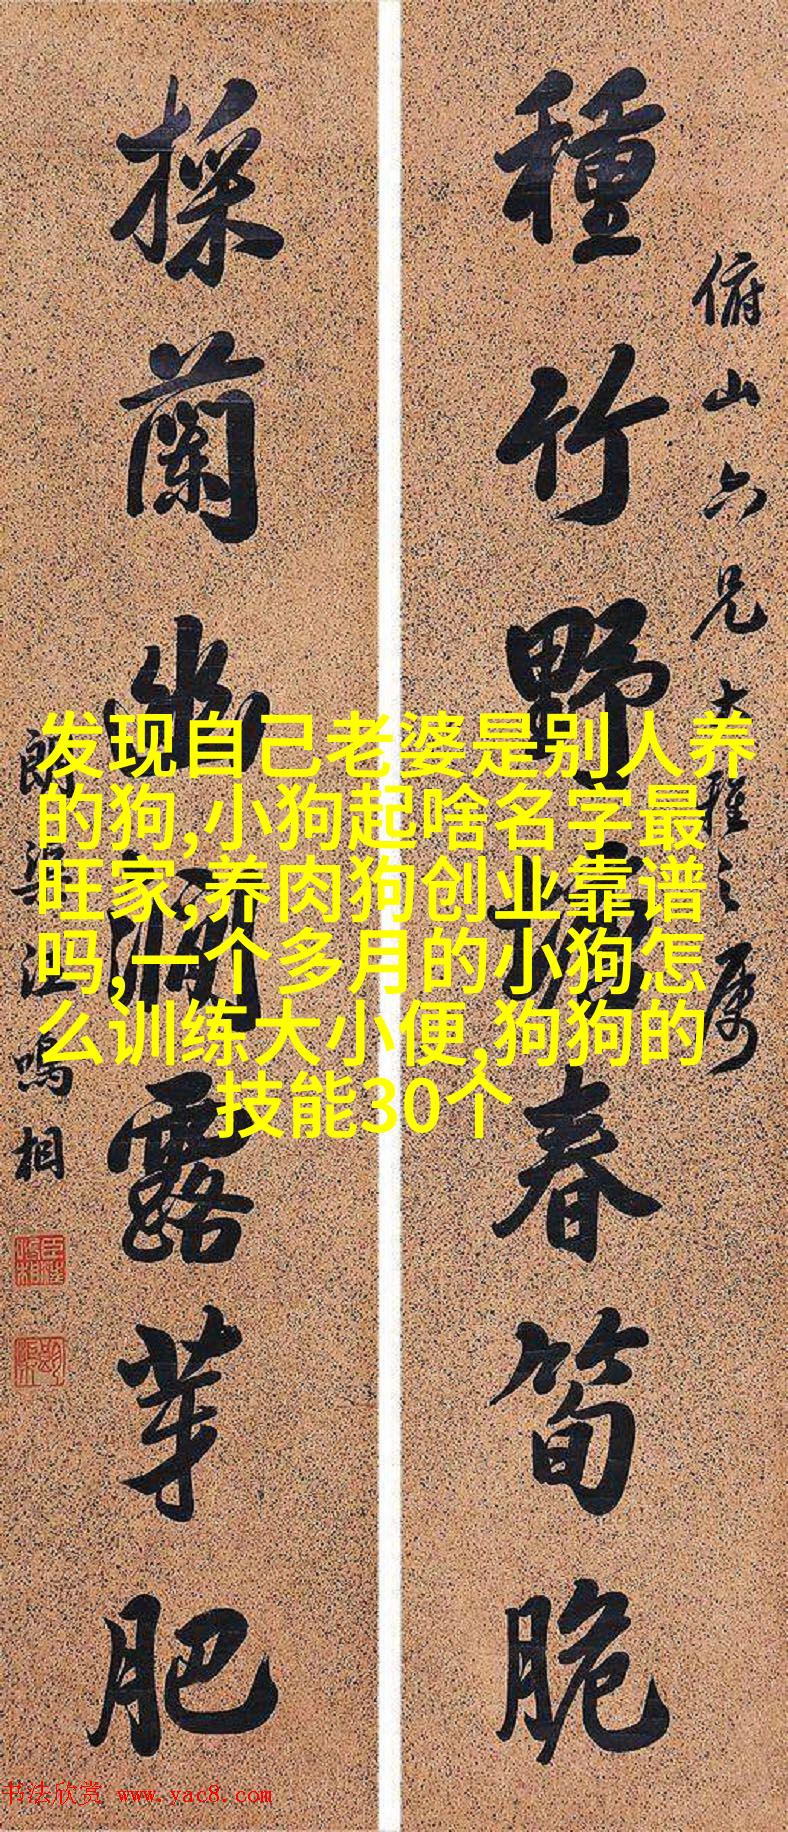 種竹野塘春筍脆
俯山六兄大雅之属
採蘭幽澗露芽肥
朗渠汪鳴相
发现自己老婆是别人养
的狗,小狗起啥名字最
旺家,养肉狗创业靠谱
吗,一个多月的小狗怎
么训练大小便,狗狗的
技能30个
书法欣赏 www.yac8.com